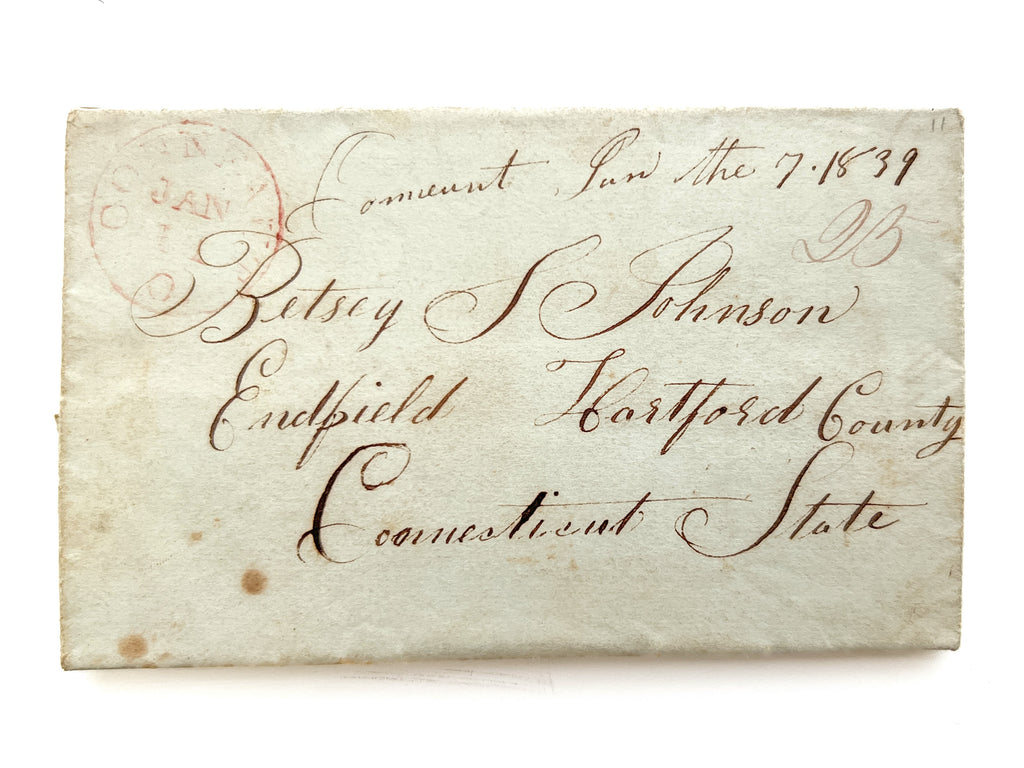 CONNEAUT O
JAN
Comeunt Jan the 7. 1839
25
Betsey S Johnson
Endfield Hartford County
Connecticut State
11